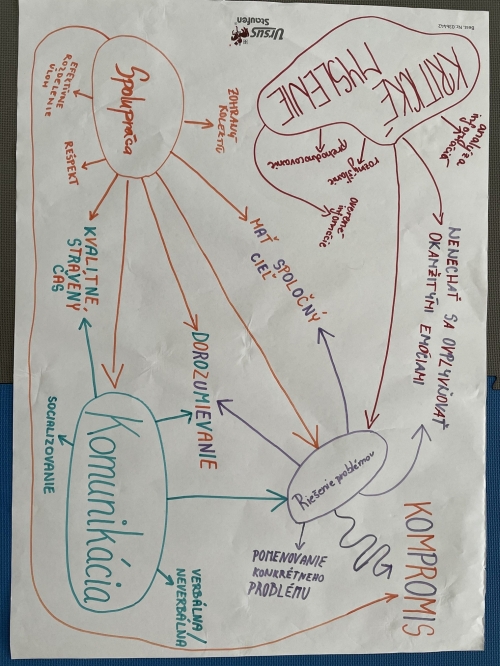 URSUS
Staufen
KRITICKÉ
MYSLENIE
analýza
informácií
prehodnocovanie
rozmýšľanie
overené
informácie
NENECHAŤ SA OVPLYVŇOVAŤ
OKAMŽITÝMI EMÓCIAMI
Spolupráca
EFEKTÍVNE
ROZDELENIE
ÚLOH
REŠPEKT
ZOHRATÝ
KOLEKTÍV
KVALITNE
STRÁVENÝ
ČAS
MAŤ SPOLOČNÝ
CIEĽ
DOROZUMIEVANIE
Komunikácia
SOCIALIZOVANIE
VERBÁLNA /
NEVERBÁLNA
Riešenie problémov
POMENOVANIE
KONKRÉTNEHO
PROBLÉMU
KOMPROMIS